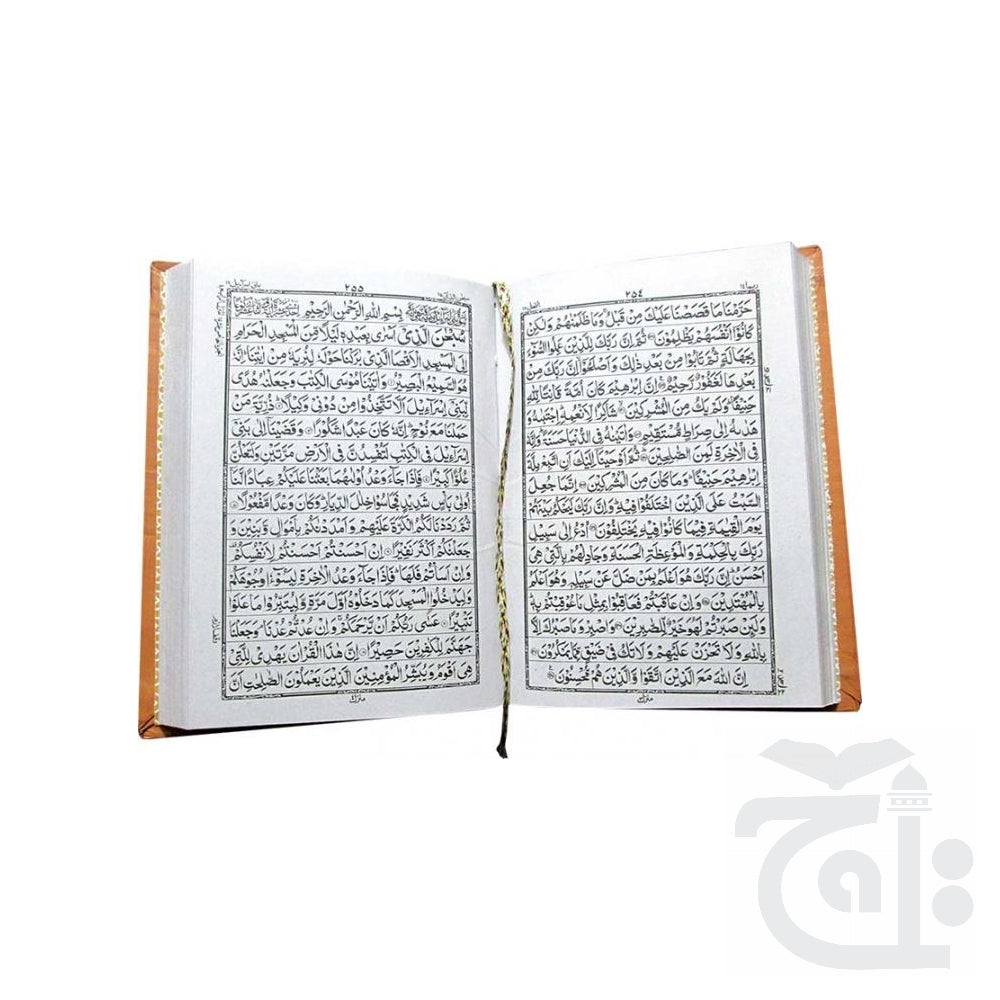 ٢٥٤
حَرَّمْنَا مَا قَصَصْنَا عَلَيْكَ مِنْ قَبْلُ وَمَا ظَلَمْنٰهُمْ وَلٰكِنْ
كَانُوْۤا اَنْفُسَهُمْ يَظْلِمُوْنَ ثُمَّ اِنَّ رَبَّكَ لِلَّذِيْنَ عَمِلُوا السُّوْٓءَ
بِجَهَالَةٍ ثُمَّ تَابُوْا مِنْۢ بَعْدِ ذٰلِكَ وَاَصْلَحُوْۤا اِنَّ رَبَّكَ مِنْۢ
بَعْدِهَا لَغَفُوْرٌ رَّحِيْمٌ اِنَّ اِبْرٰهِيْمَ كَانَ اُمَّةً قَانِتًا لِّلّٰهِ
حَنِيْفًا وَلَمْ يَكُ مِنَ الْمُشْرِكِيْنَ شَاكِرًا لِّاَنْعُمِهٖ اِجْتَبٰىهُ وَ
هَدٰىهُ اِلٰى صِرَاطٍ مُّسْتَقِيْمٍ وَاٰتَيْنٰهُ فِى الدُّنْيَا حَسَنَةً وَاِنَّهٗ
فِى الْاٰخِرَةِ لَمِنَ الصّٰلِحِيْنَ ثُمَّ اَوْحَيْنَاۤ اِلَيْكَ اَنِ اتَّبِعْ مِلَّةَ
اِبْرٰهِيْمَ حَنِيْفًا وَمَا كَانَ مِنَ الْمُشْرِكِيْنَ اِنَّمَا جُعِلَ
السَّبْتُ عَلَى الَّذِيْنَ اخْتَلَفُوْا فِيْهِ وَاِنَّ رَبَّكَ لَيَحْكُمُ بَيْنَهُمْ
يَوْمَ الْقِيٰمَةِ فِيْمَا كَانُوْا فِيْهِ يَخْتَلِفُوْنَ اُدْعُ اِلٰى سَبِيْلِ
رَبِّكَ بِالْحِكْمَةِ وَالْمَوْعِظَةِ الْحَسَنَةِ وَجَادِلْهُمْ بِالَّتِيْ هِىَ
اَحْسَنُ اِنَّ رَبَّكَ هُوَ اَعْلَمُ بِمَنْ ضَلَّ عَنْ سَبِيْلِهٖ وَهُوَ اَعْلَمُ
بِالْمُهْتَدِيْنَ وَاِنْ عَاقَبْتُمْ فَعَاقِبُوْا بِمِثْلِ مَا عُوْقِبْتُمْ بِهٖ
وَلَئِنْ صَبَرْتُمْ لَهُوَ خَيْرٌ لِّلصّٰبِرِيْنَ وَاصْبِرْ وَمَا صَبْرُكَ اِلَّا
بِاللّٰهِ وَلَا تَحْزَنْ عَلَيْهِمْ وَلَا تَكُ فِيْ ضَيْقٍ مِّمَّا يَمْكُرُوْنَ
اِنَّ اللّٰهَ مَعَ الَّذِيْنَ اتَّقَوْا وَّالَّذِيْنَ هُمْ مُّحْسِنُوْنَ
٢٥٥
بِسْمِ اللّٰهِ الرَّحْمٰنِ الرَّحِيْمِ
سُبْحٰنَ الَّذِيْۤ اَسْرٰى بِعَبْدِهٖ لَيْلًا مِّنَ الْمَسْجِدِ الْحَرَامِ
اِلَى الْمَسْجِدِ الْاَقْصَا الَّذِيْ بٰرَكْنَا حَوْلَهٗ لِنُرِيَهٗ مِنْ اٰيٰتِنَا اِنَّهٗ
هُوَ السَّمِيْعُ الْبَصِيْرُ وَاٰتَيْنَا مُوْسَى الْكِتٰبَ وَجَعَلْنٰهُ هُدًى
لِّبَنِيْۤ اِسْرَآءِيْلَ اَلَّا تَتَّخِذُوْا مِنْ دُوْنِيْ وَكِيْلًا ذُرِّيَّةَ مَنْ
حَمَلْنَا مَعَ نُوْحٍ اِنَّهٗ كَانَ عَبْدًا شَكُوْرًا وَقَضَيْنَاۤ اِلٰى بَنِيْۤ
اِسْرَآءِيْلَ فِى الْكِتٰبِ لَتُفْسِدُنَّ فِى الْاَرْضِ مَرَّتَيْنِ وَلَتَعْلُنَّ
عُلُوًّا كَبِيْرًا فَاِذَا جَآءَ وَعْدُ اُوْلٰىهُمَا بَعَثْنَا عَلَيْكُمْ عِبَادًا لَّنَاۤ
اُولِيْ بَاْسٍ شَدِيْدٍ فَجَاسُوْا خِلٰلَ الدِّيَارِ وَكَانَ وَعْدًا مَّفْعُوْلًا
ثُمَّ رَدَدْنَا لَكُمُ الْكَرَّةَ عَلَيْهِمْ وَاَمْدَدْنٰكُمْ بِاَمْوَالٍ وَّبَنِيْنَ وَ
جَعَلْنٰكُمْ اَكْثَرَ نَفِيْرًا اِنْ اَحْسَنْتُمْ اَحْسَنْتُمْ لِاَنْفُسِكُمْ
وَاِنْ اَسَاْتُمْ فَلَهَا فَاِذَا جَآءَ وَعْدُ الْاٰخِرَةِ لِيَسُوْٓءٗا وُجُوْهَكُمْ
وَلِيَدْخُلُوا الْمَسْجِدَ كَمَا دَخَلُوْهُ اَوَّلَ مَرَّةٍ وَّلِيُتَبِّرُوْا مَا عَلَوْا
تَتْبِيْرًا عَسٰى رَبُّكُمْ اَنْ يَّرْحَمَكُمْ وَاِنْ عُدْتُّمْ عُدْنَا وَجَعَلْنَا
جَهَنَّمَ لِلْكٰفِرِيْنَ حَصِيْرًا اِنَّ هٰذَا الْقُرْاٰنَ يَهْدِيْ لِلَّتِيْ
هِىَ اَقْوَمُ وَيُبَشِّرُ الْمُؤْمِنِيْنَ الَّذِيْنَ يَعْمَلُوْنَ الصّٰلِحٰتِ اَنَّ